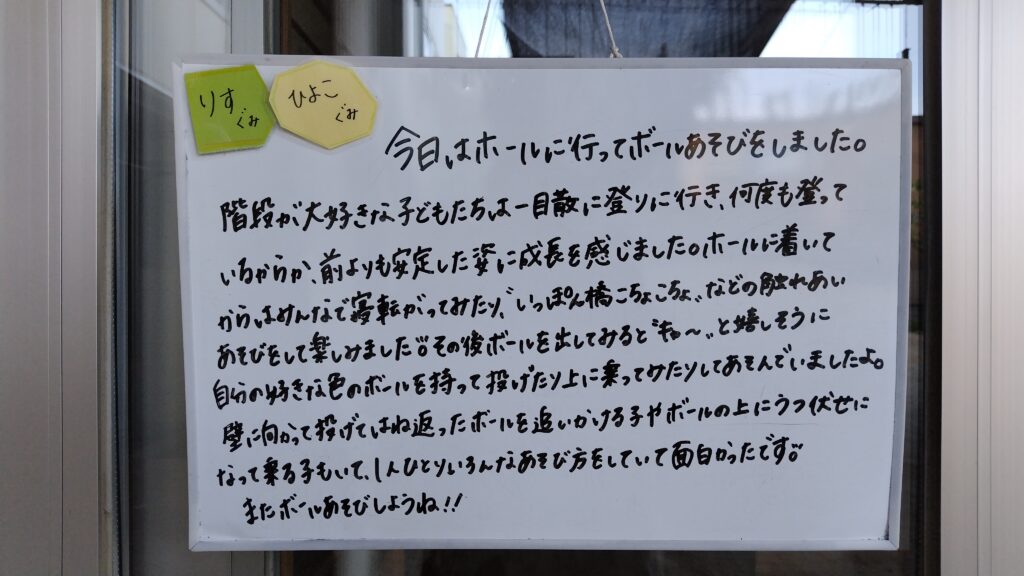 りす
ぐみ
ひよこ
ぐみ
今日はホールに行ってボールあそびをしました。
階段が大好きな子どもたちは一目散に登りに行き、何度も登って
いるからか、前よりも安定した姿に成長を感じました。ホールに着いて
からはみんなで寝転がってみたり、"いっぽん橋こちょこちょ"などの触れあい
あそびをして楽しみました。その後ボールを出してみると"キャ〜"と嬉しそうに
自分の好きな色のボールを持って投げたり上に乗ってみたりしてあそんでいましたよ。
壁に向かって投げてはね返ったボールを追いかける子やボールの上にうつ伏せに
なって乗る子もいて、1人ひとりいろんなあそび方をしていて面白かったです。
またボールあそびしようね!!